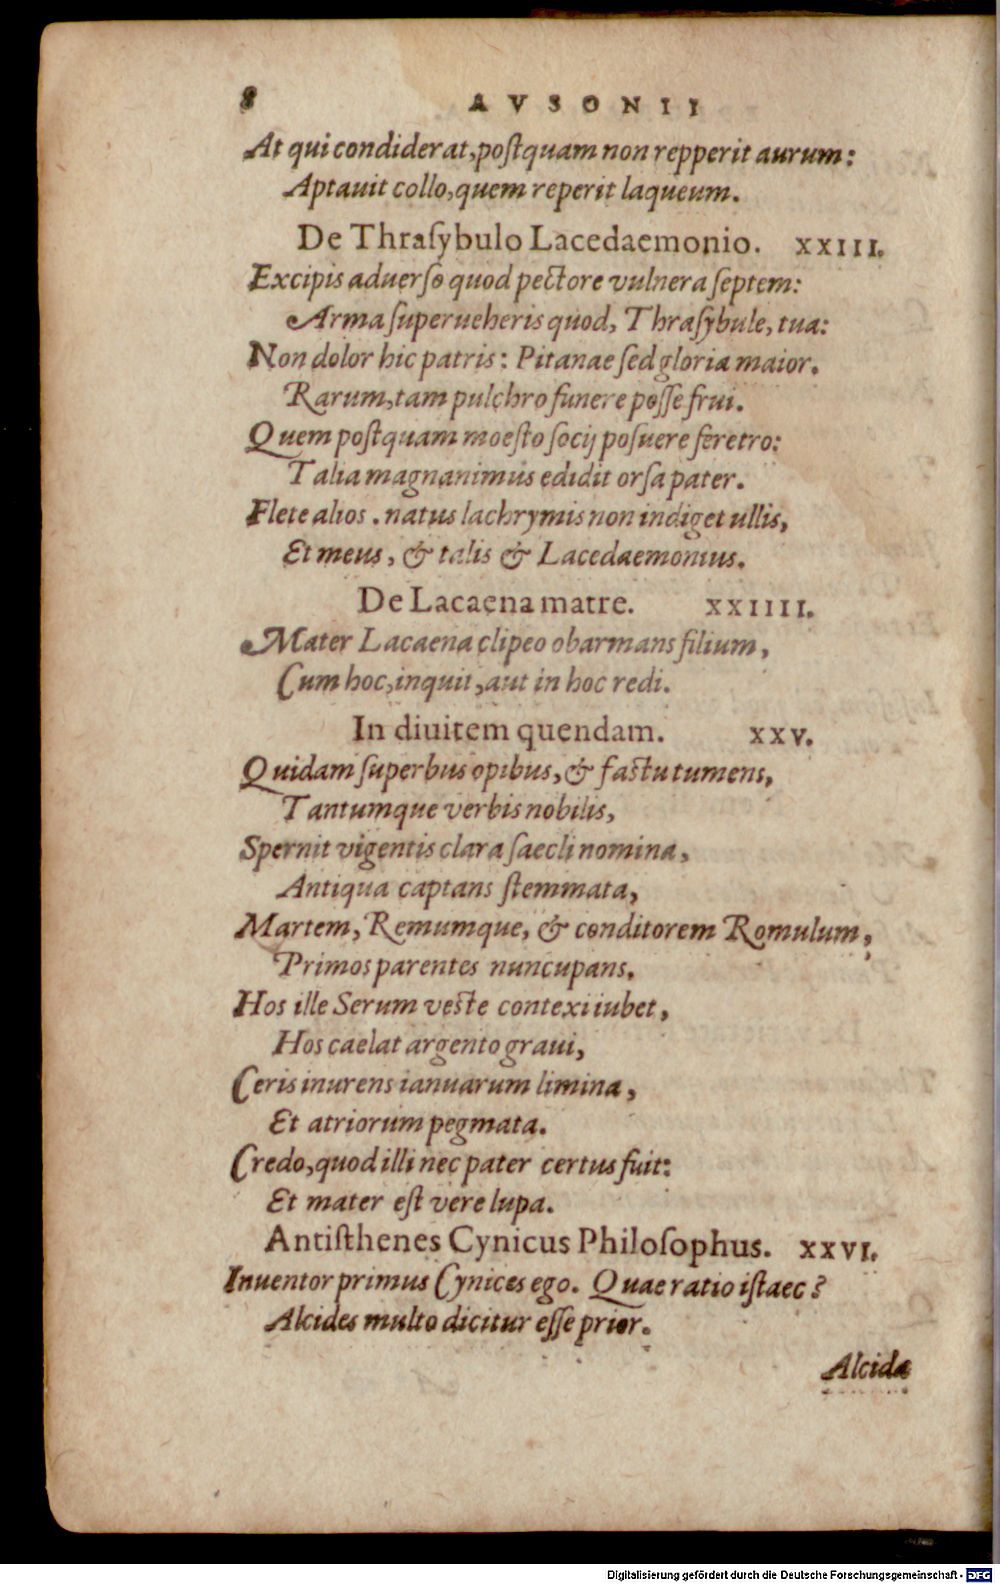 8 AVSONII
At qui condiderat, poſtquam non repperit aurum:
Aptauit collo, quem reperit laqueum.
De Thraſybulo Lacedaemonio. XXIII.
Excipis aduerſo quod pectore vulnera ſeptem:
Arma ſuperueheris quod, Thraſybule, tua:
Non dolor hic patris: Pitanae ſed gloria maior.
Rarum, tam pulchro funere poſſe frui.
Quem poſtquam moeſto ſocij poſuere feretro:
Talia magnanimus edidit orſa pater.
Flete alios. natus lachrymis non indiget ullis,
Et meus, & talis & Lacedaemonius.
De Lacaena matre. XXIIII.
Mater Lacaena clipeo obarmans filium,
Cum hoc, inquit, aut in hoc redi.
In diuitem quendam. XXV.
Quidam ſuperbus opibus, & faſtu tumens,
Tantumque verbis nobilis,
Spernit vigentis clara ſaecli nomina,
Antiqua captans ſtemmata,
Martem, Remumque, & conditorem Romulum,
Primos parentes nuncupans.
Hos ille Serum veſte contexi iubet,
Hos caelat argento graui,
Ceris inurens ianuarum limina,
Et atriorum pegmata.
Credo, quod illi nec pater certus fuit:
Et mater eſt vere lupa.
Antiſthenes Cynicus Philoſophus. XXVI.
Inuentor primus Cynices ego. Quae ratio iſtaec?
Alcides multo dicitur eſſe prior.
Alcida
Digitalisierung gefördert durch die Deutsche Forschungsgemeinschaft - DFG